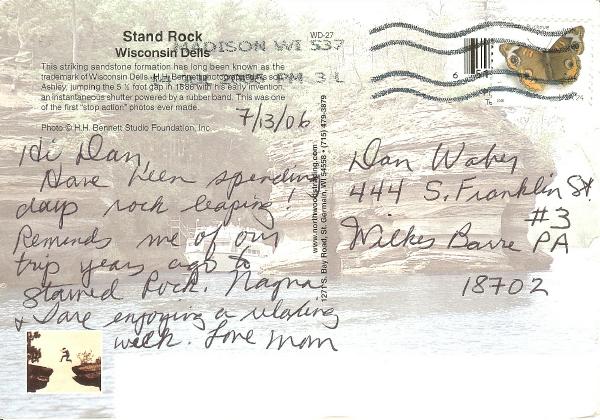 Stand Rock
WD-27
Wisconsin Dells
MADISON WI 537
This striking sandstone formation has long been known as the
trademark of Wisconsin Dells. H.H. Bennett photographed his son,
Ashley, jumping the 5 ½ foot gap in 1886 with his early invention,
an instantaneous shutter powered by a rubber band. This was one
of the first "stop action" photos ever made.
Photo © H.H. Bennett Studio Foundation, Inc.
7/13/06
Hi Dan
Have been spending
days rock leaping!
Reminds me of our
trip years ago to
Starved Rock.
& I are enjoying a relaxing
week. Love Mom
www.northwoodstrading.com
1271 S. Bay Road, St. Germain, WI 54558 • (715) 479-3879
Dan
444 S. Franklin St.
#3
Wilkes Barre PA
18702
USA 24